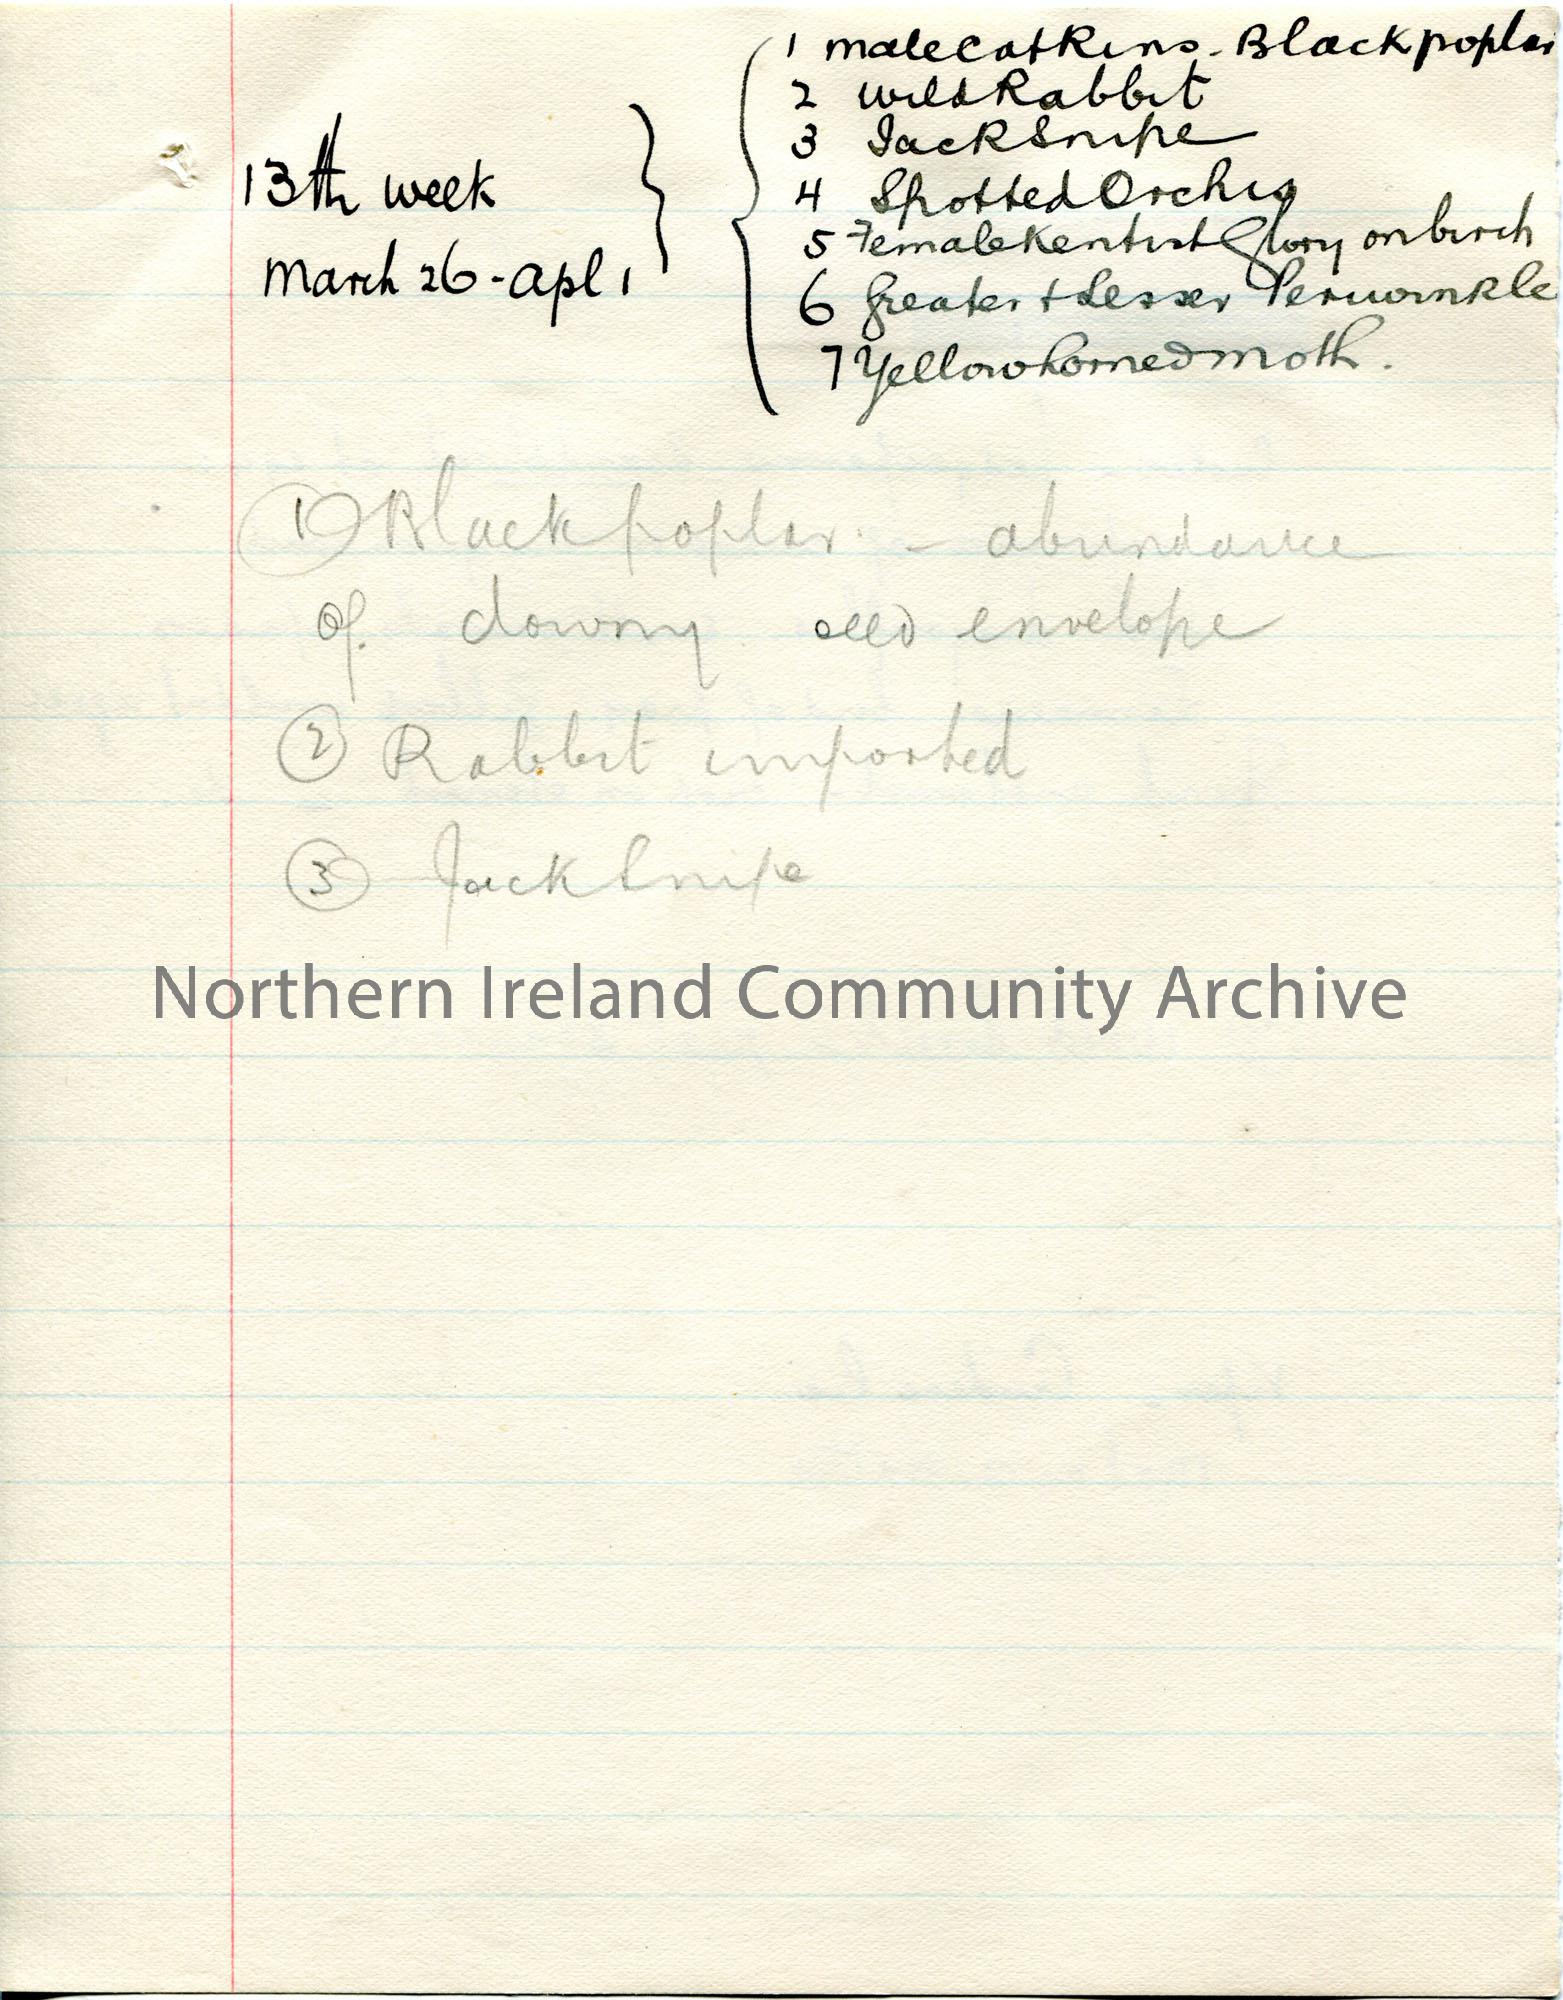 13th week
March 26 - Apl 1
1 male catkins - Black poplar
2 Wild Rabbit
3 Jack Snipe
4 Spotted Orchis
5 Female Kentish Glory on birch
6 Greater + Lesser Periwinkle
7 Yellow horned moth.
1 Black poplar - abundance
of downy seed envelope
2 Rabbit imported
3 Jack Snipe
Northern Ireland Community Archive